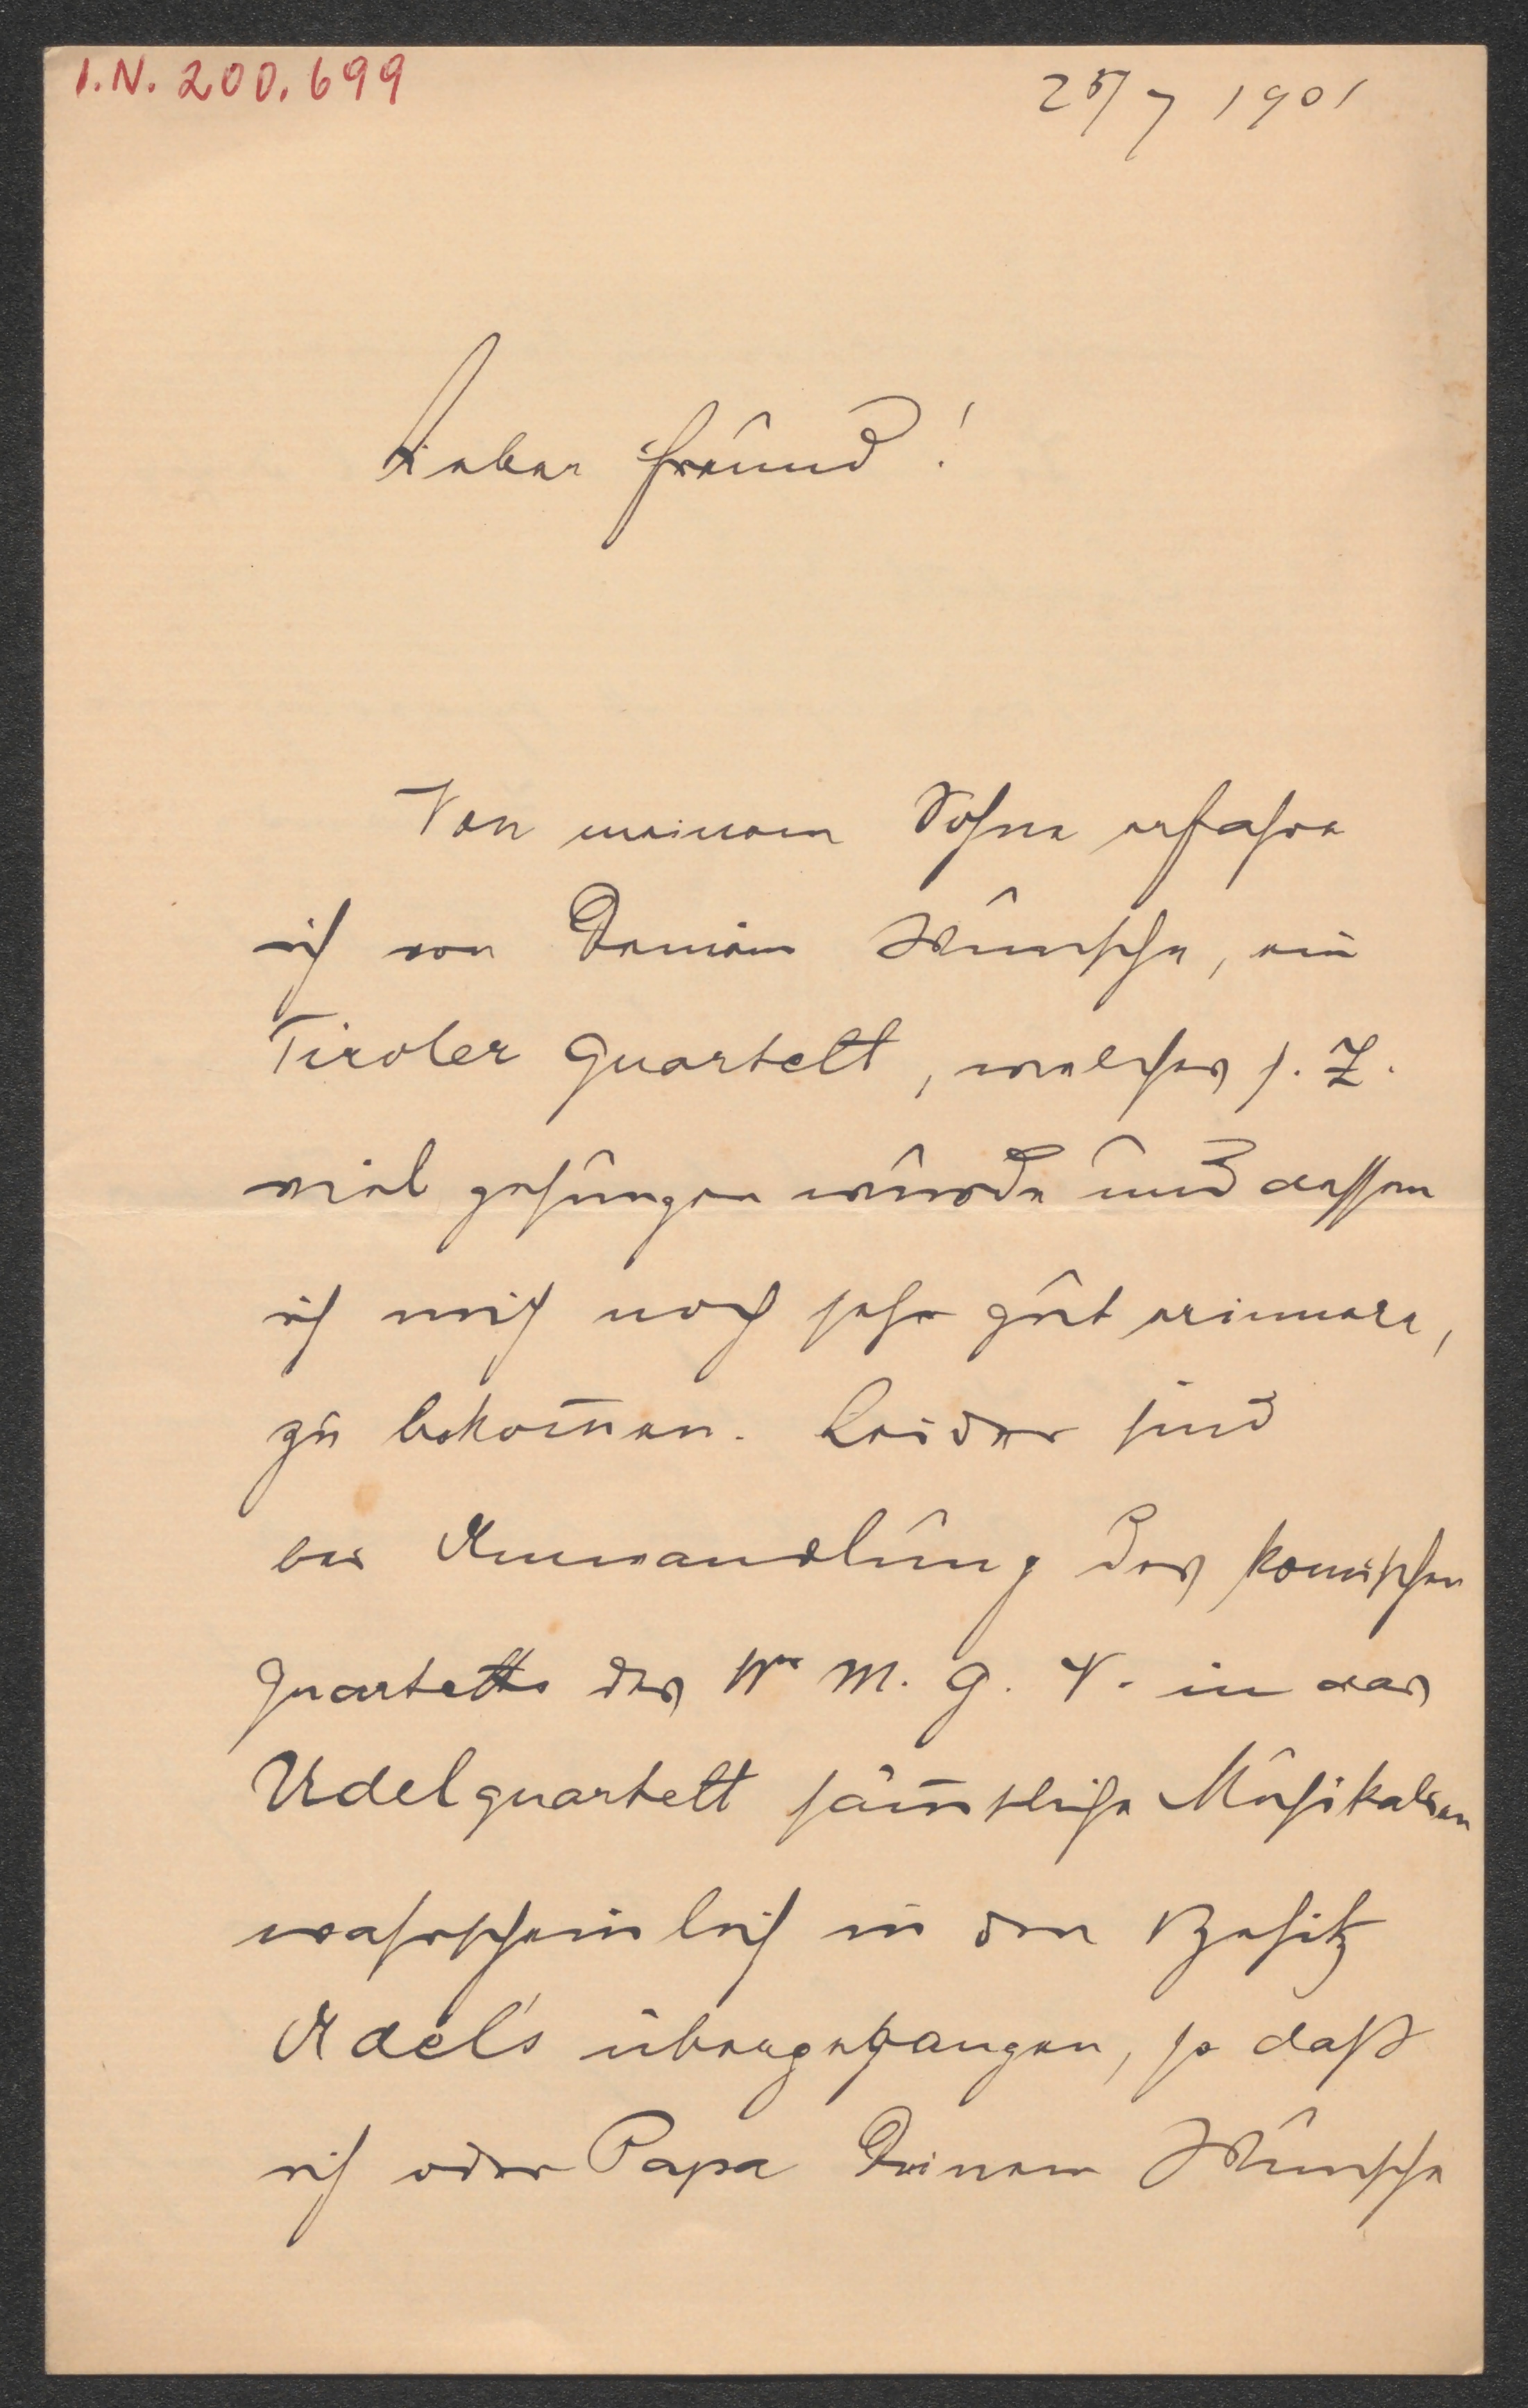 I.N. 200.699
25/7 1901
Lieber Freund!
Von meinem Sohne erfahre
ich von Deinem Wunsche, ein
Tiroler Quartett, welches s. Z.
viel gesungen wurde und dessen
ich mich noch sehr gut erinnere,
zu bekom̄en. Leider sind
bei Umwandlung des komischen
Quartetts des Wr M. G. V. in das
Udelquartett säm̄tliche Musikalien
wahrscheinlich in den Besitz
Udel's übergegangen, so daß
ich oder Papa Deinem Wunsche